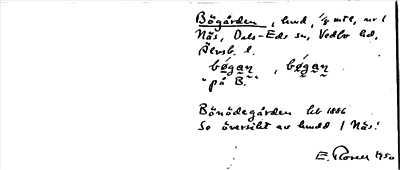 Bögården, hmd, 1/2 mtl, nr 1
Näs, Dals-Eds sn, Vedbo hd,
Älvsb. l.
bǿgan̰, bǿgan̰
"på B."
Bönödegården Jb 1886
Se översikt av hmdd / Näs!
E. 1950